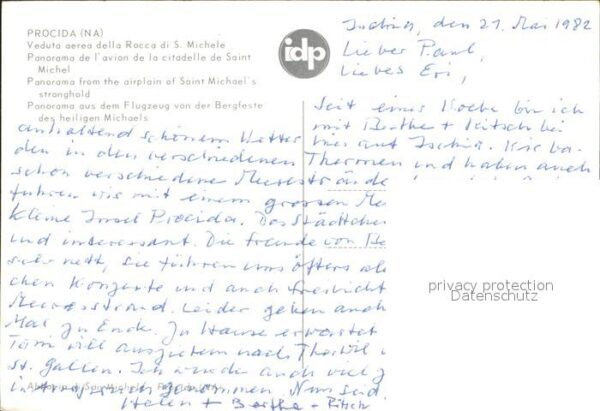 PROCIDA (NA)
Veduta aerea della Rocca di S. Michele
Panorama de l'avion de la citadelle de Saint
Michel
Panorama from the airplain of Saint Michael's
stronghold
Panorama aus dem Flugzeug von der Bergfeste
des heiligen Michaels
idp
Ischia, den 21. Mai 1982
Lieber Paul,
Liebes Eri,
Seit einer Woche bin ich
mit Berthe + Kitsch bei
anhaltend schönem Wetter
hier auf Ischia. Wir ba-
den in den verschiedenen Thermen und haben auch
schon verschiedene Meeresstrände
führen wir mit einem grossen
kleine Insel Procida. Das Städtchen
und interessant. Die Freunde von Be
sehr nett, sie führen uns öfters
chen Konzerte und auch
Meeresstrand. Leider gehen auch
Mal zu Ende. Zu Hause erwartet
viel
St. Gallen. Ich wurde auch viel
Nun seid
Helen + Berthe +
privacy protection
Datenschutz